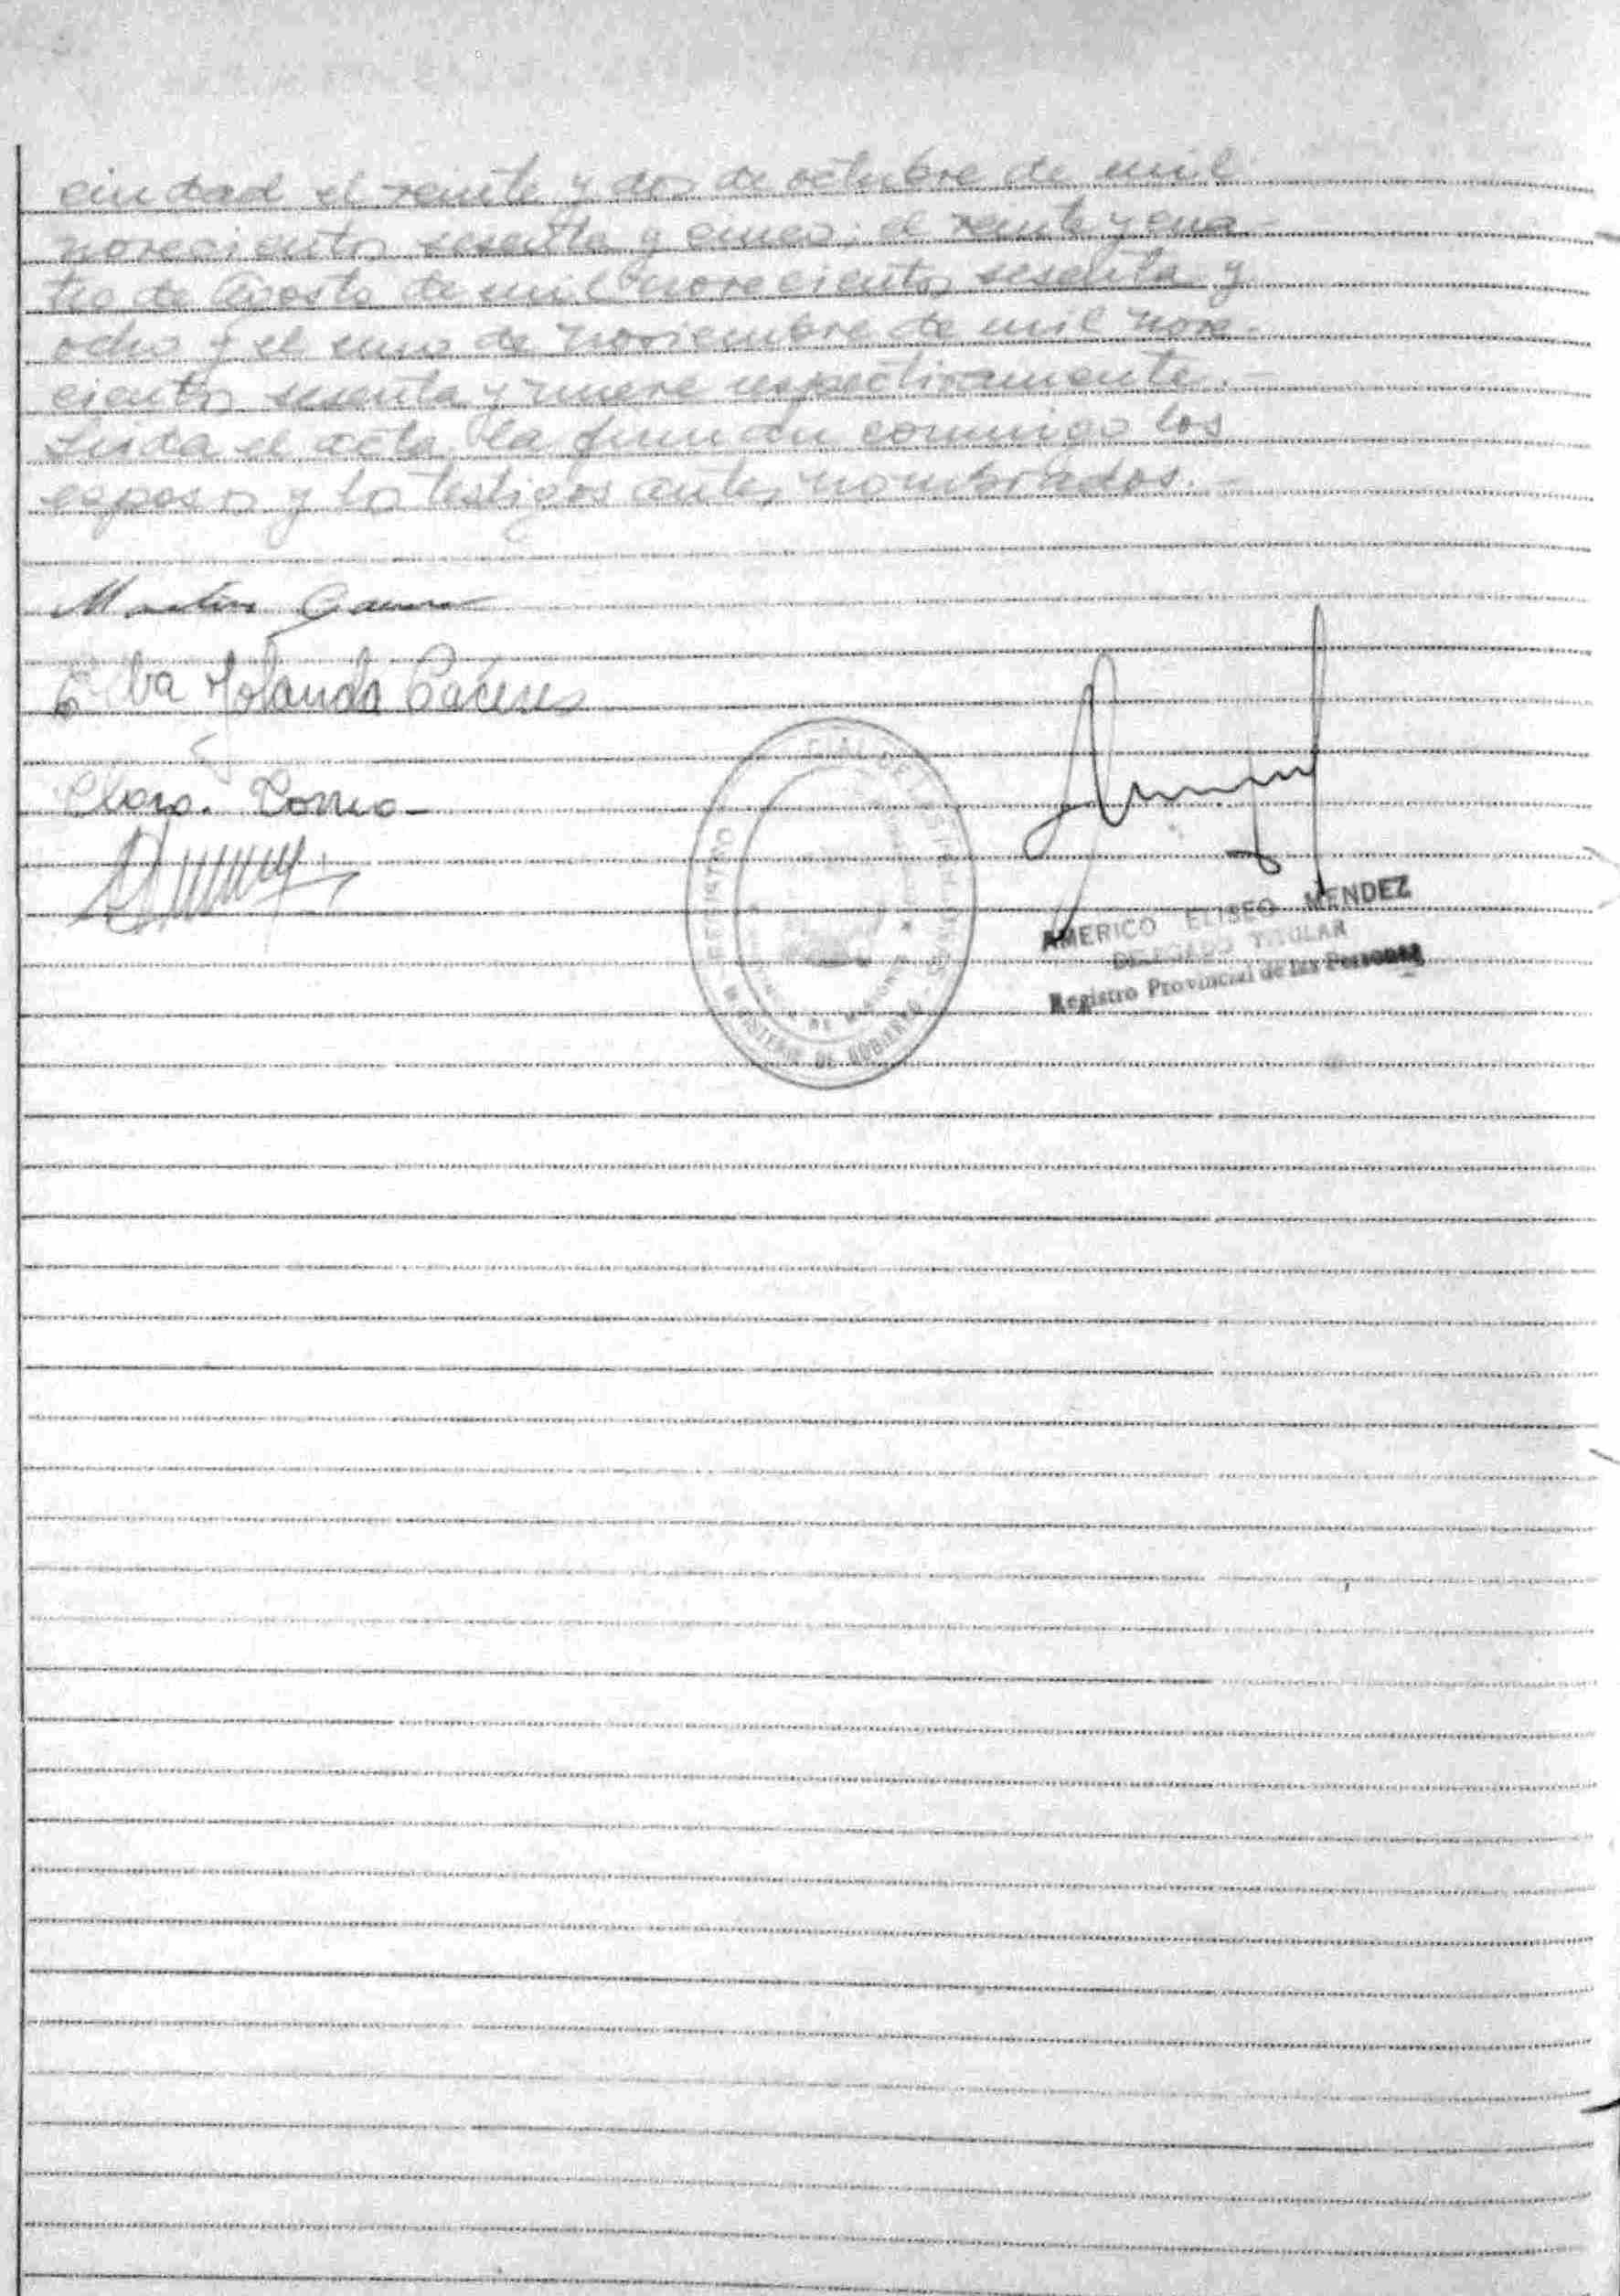 ciudad el veinte y dos de octubre de mil
novecientos sesenta y cinco; el veinte y cua-
tro de Agosto de mil novecientos sesenta y
ocho y el uno de noviembre de mil nove-
cientos sesenta y nueve respectivamente.-
Leida el acta, la firman conmigo los
esposos y los testigos antes nombrados.-
Elba Yolanda Cáceres
REGISTRO
MINISTERIO DE GOBIERNO
AMERICO ELISEO MENDEZ
DELEGADO TITULAR
Registro Provincial de las Personas